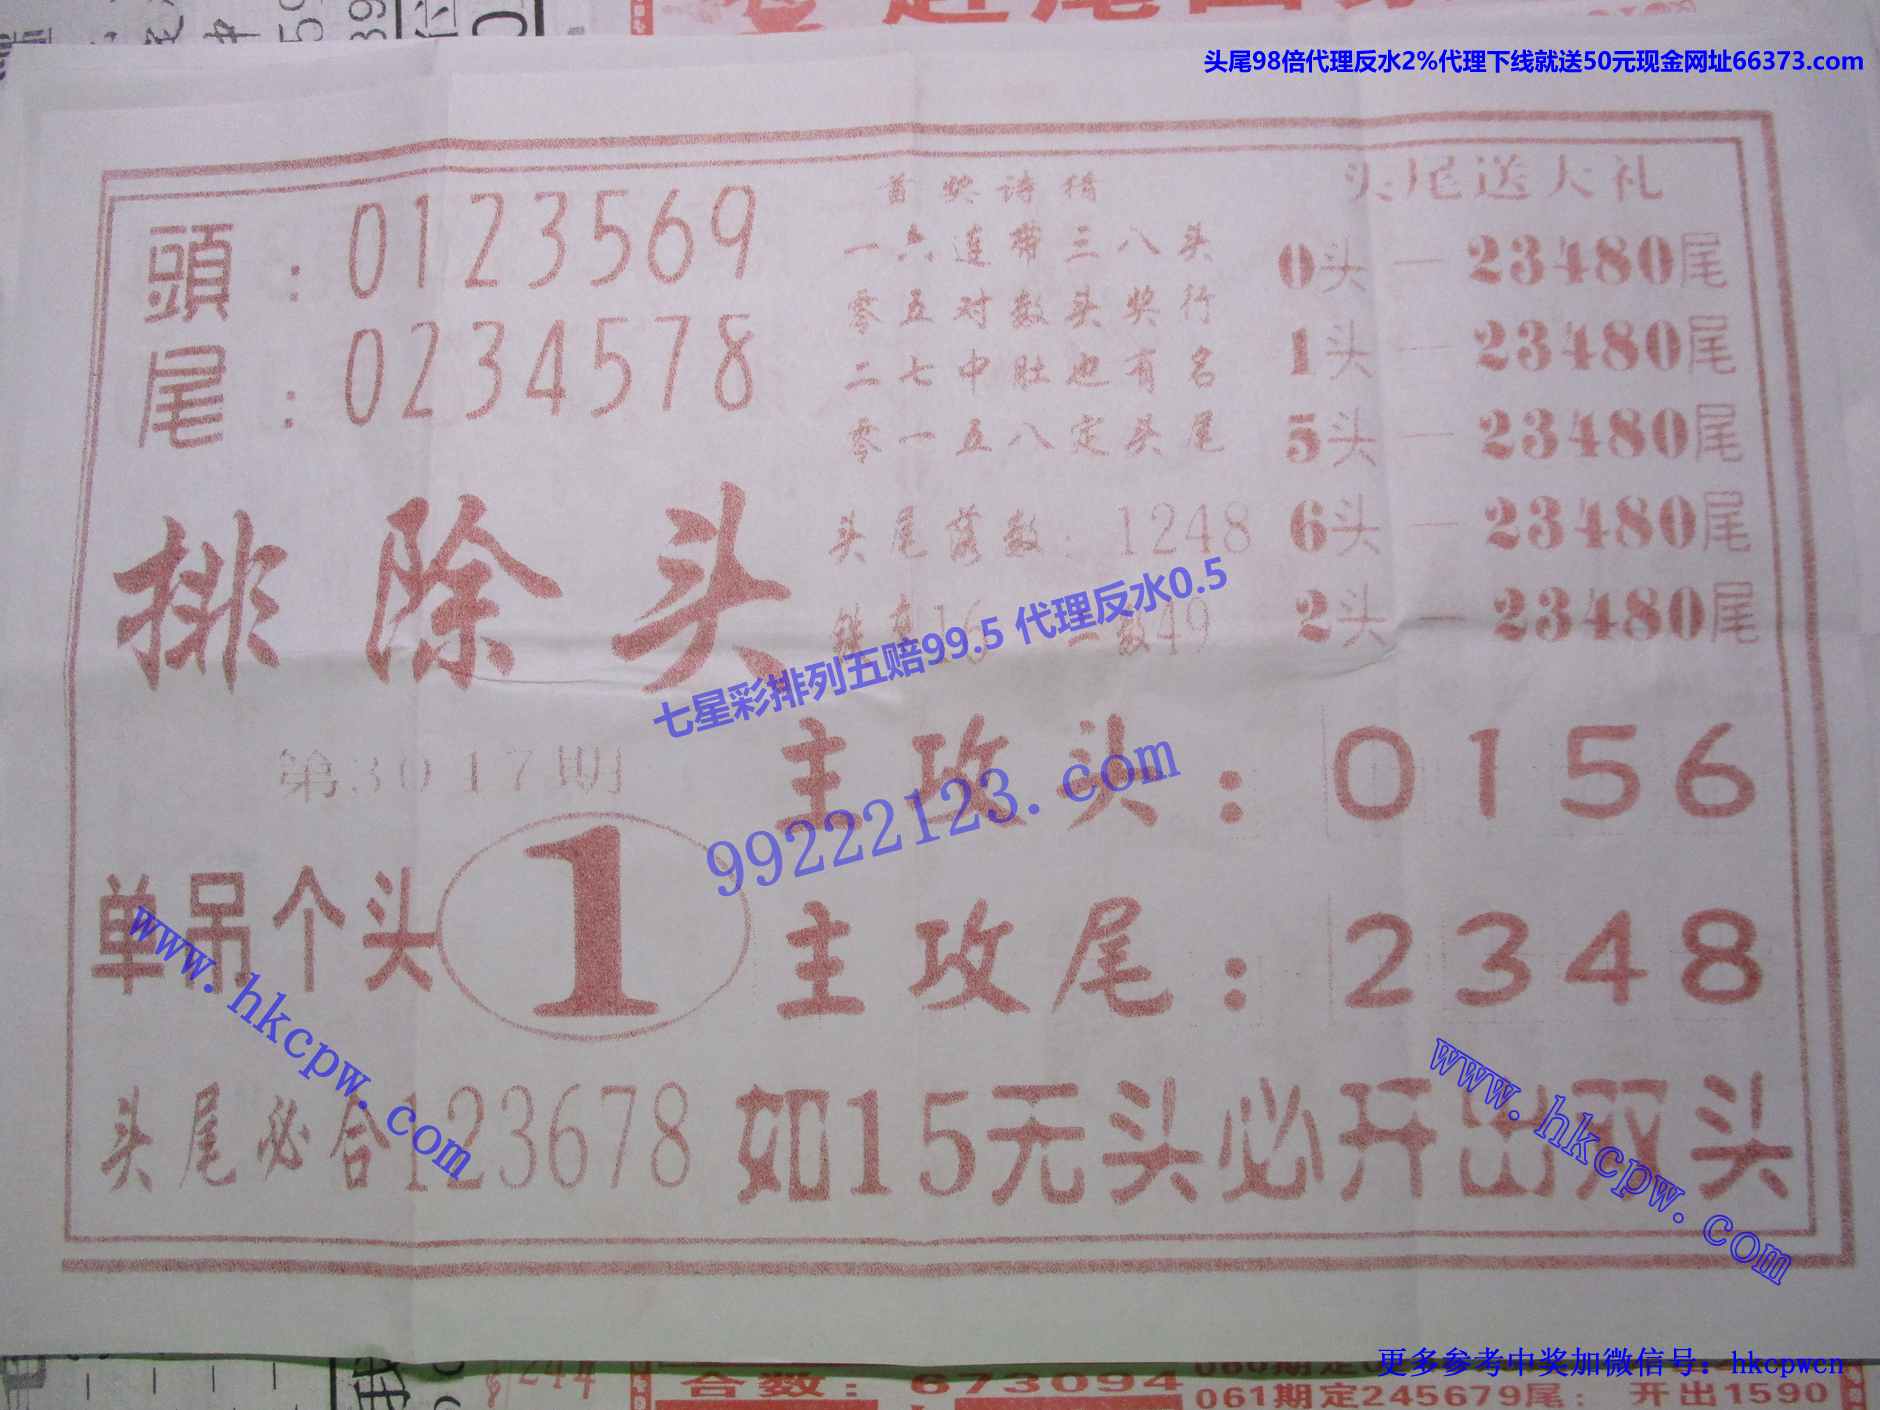 头尾98倍代理反水2%代理下线就送50元现金网址66373.com
頭：0123569
尾：0234578
排除头
第3017期
单吊个头 1
头尾必合123678
首奖诗猜
一六连带三八头
零五对数头奖行
二七中肚也有名
零一五八定头尾
头尾落数：1248
16 二数49
头尾送大礼
0头－23480尾
1头－23480尾
5头－23480尾
6头－23480尾
2头－23480尾
七星彩排列五赔99.5 代理反水0.5
99222123.com
主攻头：0156
主攻尾：2348
如15无头必开出双头
www.hkcpw.com
www.hkcpw.com
更多参考中奖加微信号：hkcpwcn
合数：673094
061期定245679尾：开出1590